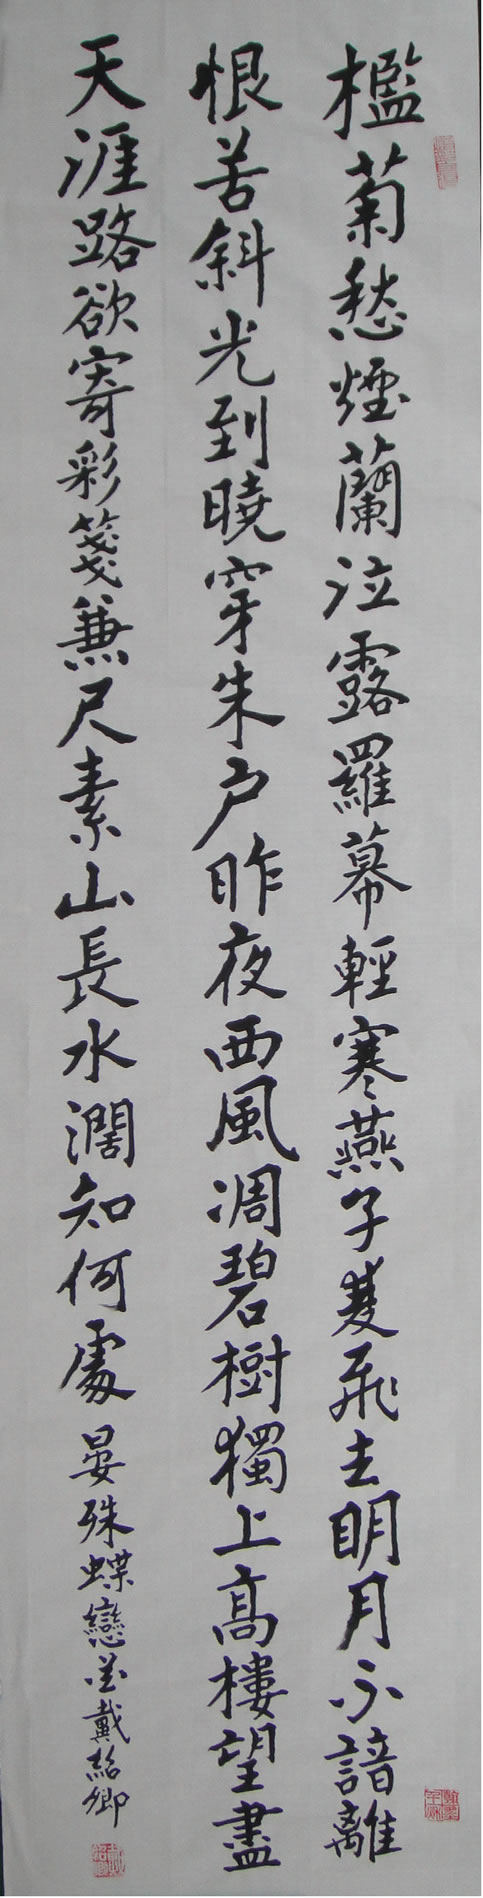 檻菊愁煙蘭泣露羅幕輕寒燕子雙飛去明月不諳離
恨苦斜光到曉穿朱户昨夜西風凋碧樹獨上高樓望盡
天涯路欲寄彩箋兼尺素山長水濶知何處 晏殊蝶戀花戴紹卿